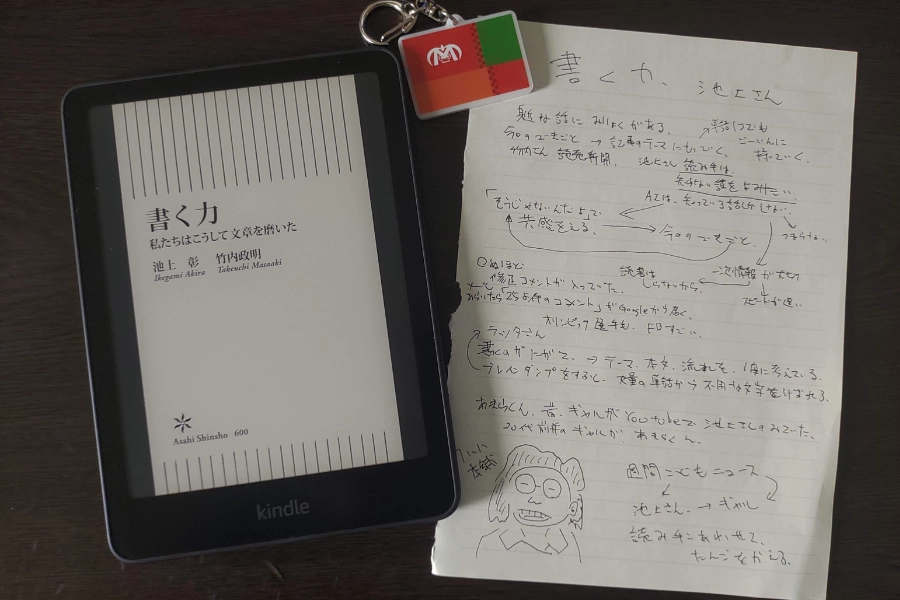 書く力
私たちはこうして文章を磨いた
池上 彰 竹内政明
Ikegami Akira Takeuchi Masaaki
Asahi Shinsho 600
kindle
書く力、池上さん
身近な話にみりょくがある。
今日のできごと → 記事のテーマにもっていく。
竹内さん 読売新聞、池上さん 読み手は
知らない話をよみたい…
AIは、知っている話しかしない…
つまらない
「そうじゃないんだよ」で
共感をえる。
今日のできごと。
読者は
しらないから、
一次情報が大切
スピードが速い
修正コメントが入っていた。
「25件のコメント」がGoogleから届く。
オリンピック選手も、
ライターさん
書くのがにがて、→ テーマ、本文、流れを、1度に考えている。
ブレインダンプをすると、大量の単語から不用な文字をけずれる。
あきらくん、昔、ギャルがYoutubeで池上さんのみていた。
20代前半のギャルが あきらくん。
週間こどもニュース
池上さん → ギャル
読み手にあわせて、
たんごをかえる。